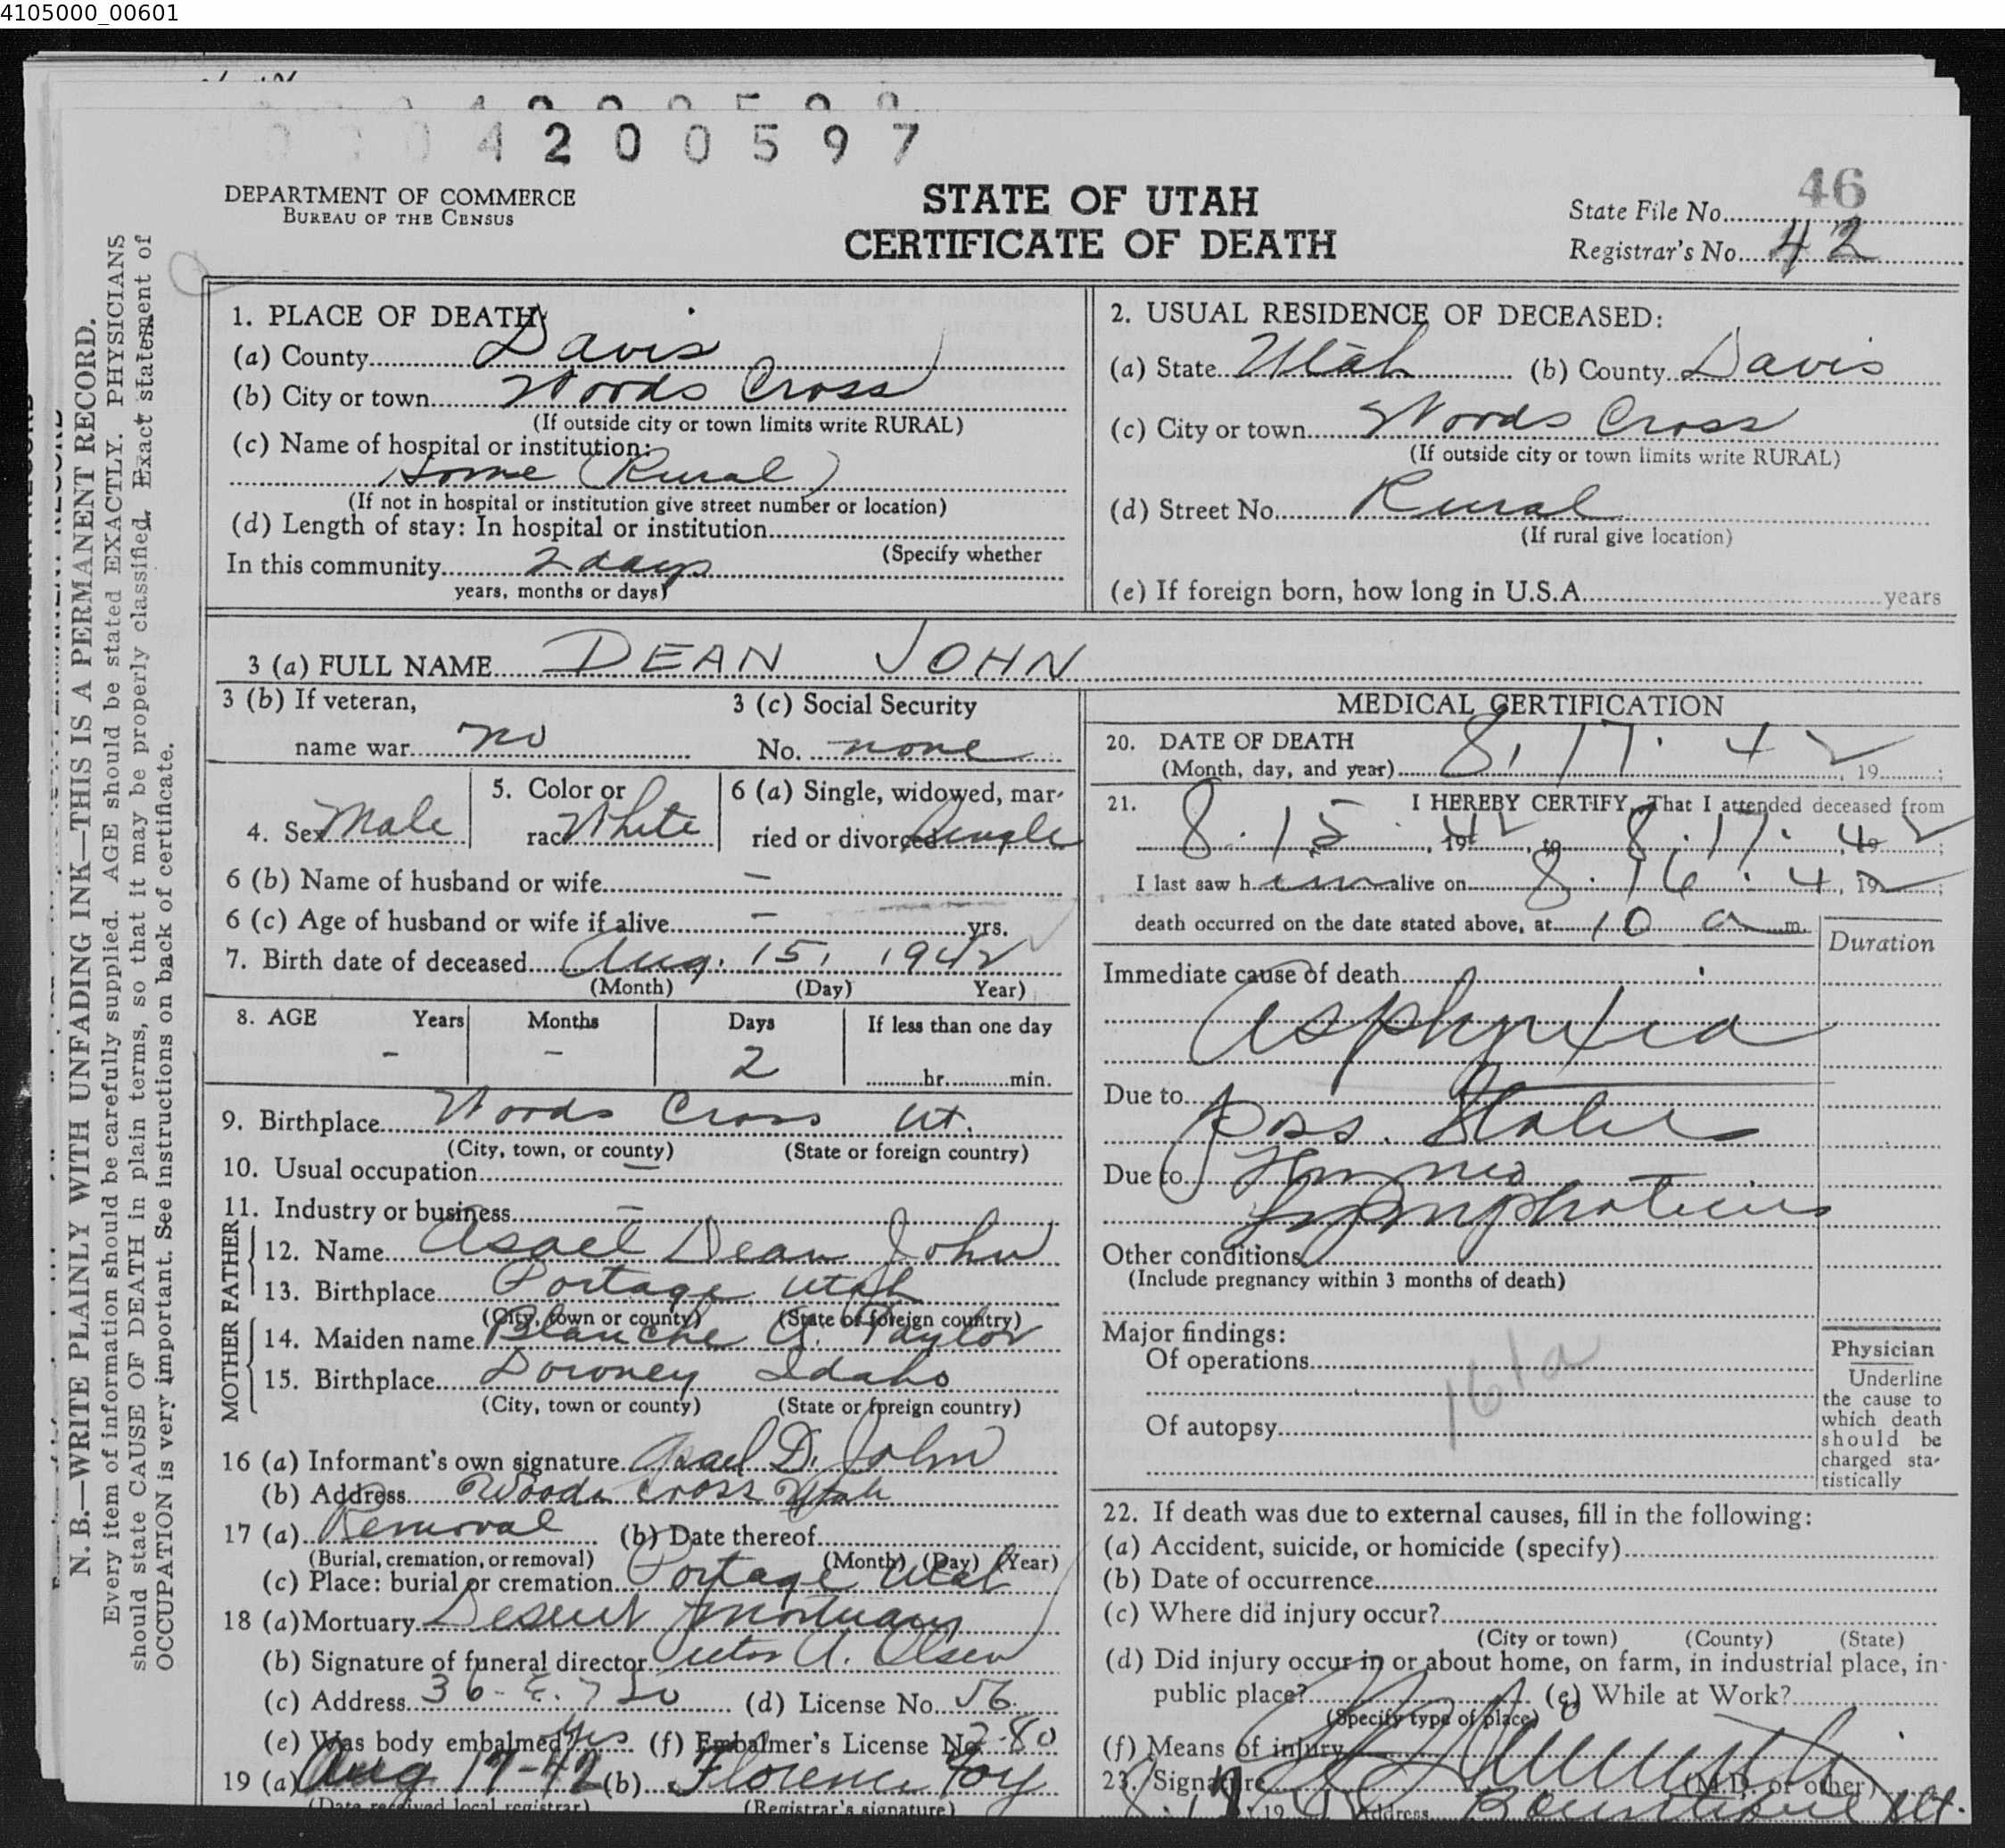 4105000_00601
4200597
DEPARTMENT OF COMMERCE
BUREAU OF THE CENSUS
STATE OF UTAH
CERTIFICATE OF DEATH
State File No. 46
Registrar's No. 42
N. B.—WRITE PLAINLY WITH UNFADING INK—THIS IS A PERMANENT RECORD.
Every item of information should be carefully supplied. AGE should be stated EXACTLY. PHYSICIANS
should state CAUSE OF DEATH in plain terms, so that it may be properly classified. Exact statement of
OCCUPATION is very important. See instructions on back of certificate.
1. PLACE OF DEATH
(a) County Davis
(b) City or town Woods Cross
(If outside city or town limits write RURAL)
(c) Name of hospital or institution:
Home (Rural)
(If not in hospital or institution give street number or location)
(d) Length of stay: In hospital or institution
(Specify whether
In this community 2 days
years, months or days)
2. USUAL RESIDENCE OF DECEASED:
(a) State Utah (b) County Davis
(c) City or town Woods Cross
(If outside city or town limits write RURAL)
(d) Street No. Rural
(If rural give location)
(e) If foreign born, how long in U.S.A. years
3 (a) FULL NAME DEAN JOHN
3 (b) If veteran,
name war no
3 (c) Social Security
No. none
4. Sex Male
5. Color or
race White
6 (a) Single, widowed, mar-
ried or divorced Single
6 (b) Name of husband or wife —
6 (c) Age of husband or wife if alive — yrs.
7. Birth date of deceased Aug. 15, 1942
(Month) (Day) Year)
8. AGE Years Months Days If less than one day
- - 2 hr. min.
9. Birthplace Woods Cross Ut.
(City, town, or county) (State or foreign country)
10. Usual occupation —
11. Industry or business —
FATHER
12. Name Asael Dean John
13. Birthplace Portage Utah
(City, town or county) (State of foreign country)
MOTHER
14. Maiden name Blanche A. Taylor
15. Birthplace Downey Idaho
(City, town or county) (State or foreign country)
16 (a) Informant's own signature Asael D. John
(b) Address Woods Cross Utah
17 (a) Removal (b) Date thereof
(Burial, cremation, or removal) (Month) (Day) (Year)
(c) Place: burial or cremation Portage Utah
18 (a) Mortuary Deseret Mortuary
(b) Signature of funeral director Victor A. Olsen
(c) Address 36 - E. 7 So (d) License No. 56
(e) Was body embalmed? Yes (f) Embalmer's License No. 280
19 (a) Aug 17-42 (b) Florence Foy
(Date received local registrar) (Registrar's signature)
MEDICAL CERTIFICATION
20. DATE OF DEATH
(Month, day, and year) 8. 17. 42, 19
21. I HEREBY CERTIFY, That I attended deceased from
8. 15. 42, 19 to 8. 17. 42
I last saw him alive on 8. 16. 42, 19
death occurred on the date stated above, at 10 a m.
Duration
Immediate cause of death
Asphyxia
Due to Poss. Status
Due to Thymico
Lymphaticus
Other conditions
(Include pregnancy within 3 months of death)
Major findings:
Of operations
161a
Of autopsy
Physician
Underline
the cause to
which death
should be
charged sta-
tistically
22. If death was due to external causes, fill in the following:
(a) Accident, suicide, or homicide (specify)
(b) Date of occurrence
(c) Where did injury occur?
(City or town) (County) (State)
(d) Did injury occur in or about home, on farm, in industrial place, in
public place? (e) While at Work?
(Specify type of place)
(f) Means of injury
23. Signature (M.D. or other)
19 Address Bountiful Ut.